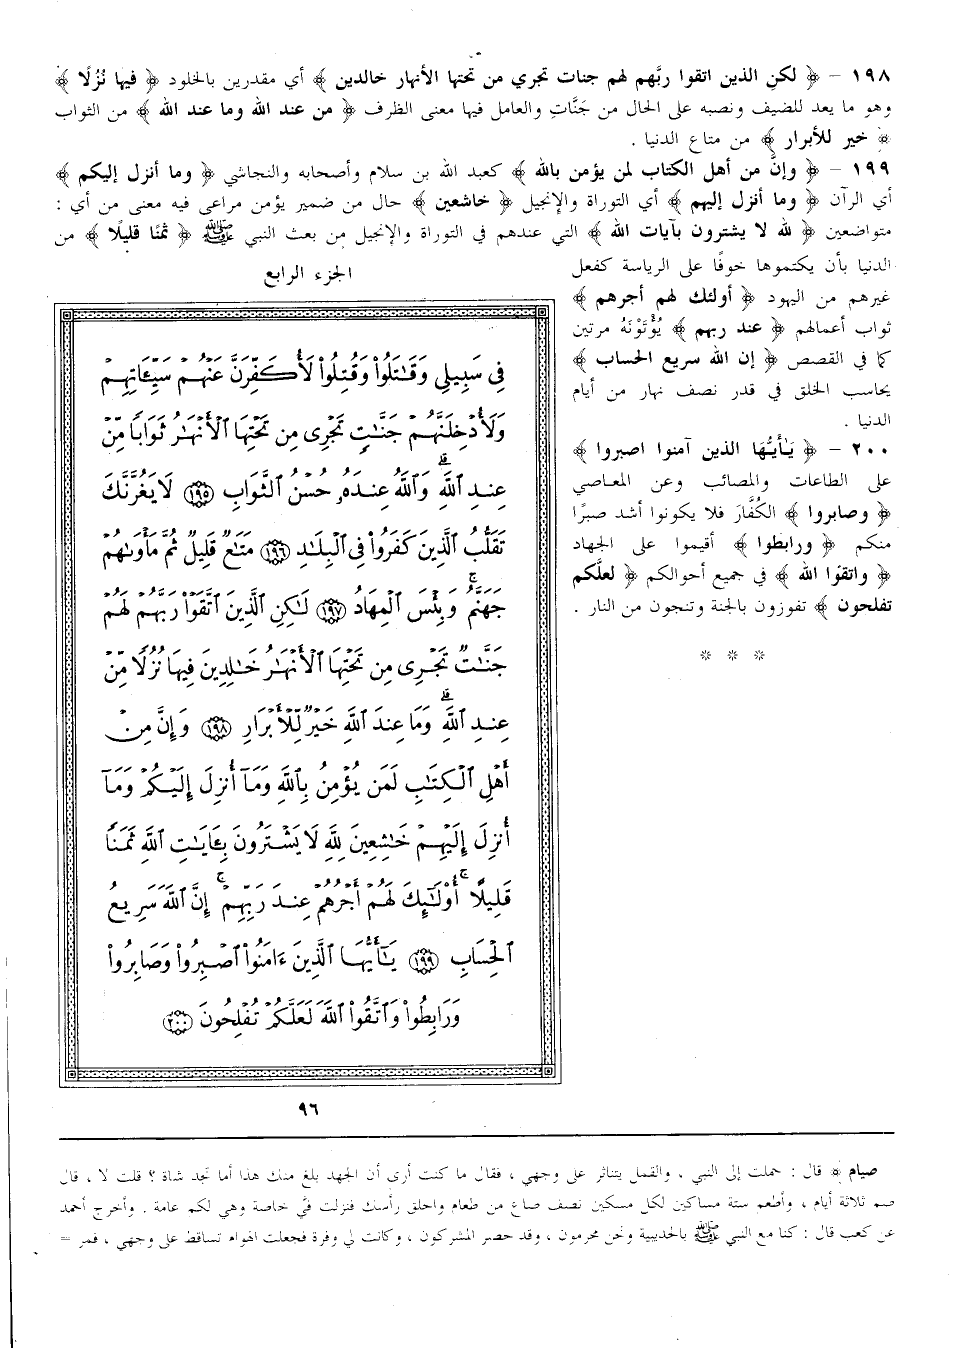 ١٩٨ – ﴿ لكنِ الذين اتقوا ربَّهم لهم جنات تجري من تحتها الأنهار خالدين ﴾ أي مقدرين بالخلود ﴿ فيها نُزُلًا ﴾
وهو ما يعد للضيف ونصبه على الحال من جَنَّاتٍ والعامل فيها معنى الظرف ﴿ من عند الله وما عند الله ﴾ من الثواب
﴿ خير للأبرار ﴾ من متاع الدنيا .
١٩٩ – ﴿ وإنَّ من أهل الكتاب لمن يؤمن بالله ﴾ كعبد الله بن سلام وأصحابه والنجاشي ﴿ وما أنزل إليكم ﴾
أي الرآن ﴿ وما أنزل إليهم ﴾ أي التوراة والإنجيل ﴿ خاشعين ﴾ حال من ضمير يؤمن مراعى فيه معنى من أي :
متواضعين ﴿ لله لا يشترون بآيات الله ﴾ التي عندهم في التوراة والإنجيل مِن بعث النبي ﷺ ﴿ ثمنًا قليلًا ﴾ من
الدنيا بأن يكتموها خوفًا على الرياسة كفعل
غيرهم من اليهود ﴿ أولئك لهم أجرهم ﴾
ثواب أعمالهم ﴿ عند ربهم ﴾ يُؤْتَوْنَهُ مرتين
كما في القصص ﴿ إن الله سريع الحساب ﴾
يحاسب الخلق في قدر نصف نهار من أيام
الدنيا .
٢٠٠ – ﴿ يَـٰأيُّها الذين آمنوا اصبروا ﴾
على الطاعات والمصائب وعن المعاصي
﴿ وصابروا ﴾ الكُفَّارَ فلا يكونوا أشد صبرًا
منكم ﴿ ورابطوا ﴾ أقيموا على الجهاد
﴿ واتقوا الله ﴾ في جميع أحوالكم ﴿ لعلَّكم
تفلحون ﴾ تفوزون بالجنة وتنجون من النار .
* * *
الجزء الرابع
فِى سَبِيلِى وَقَـٰتَلُوا۟ وَقُتِلُوا۟ لَأُكَفِّرَنَّ عَنْهُمْ سَيِّـَٔاتِهِمْ
وَلَأُدْخِلَنَّهُمْ جَنَّـٰتٍ تَجْرِى مِن تَحْتِهَا ٱلْأَنْهَـٰرُ ثَوَابًا مِّنْ
عِندِ ٱللَّهِ ۗ وَٱللَّهُ عِندَهُۥ حُسْنُ ٱلثَّوَابِ ١٩٥ لَا يَغُرَّنَّكَ
تَقَلُّبُ ٱلَّذِينَ كَفَرُوا۟ فِى ٱلْبِلَـٰدِ ١٩٦ مَتَـٰعٌ قَلِيلٌ ثُمَّ مَأْوَىٰهُمْ
جَهَنَّمُ ۚ وَبِئْسَ ٱلْمِهَادُ ١٩٧ لَـٰكِنِ ٱلَّذِينَ ٱتَّقَوْا۟ رَبَّهُمْ لَهُمْ
جَنَّـٰتٌ تَجْرِى مِن تَحْتِهَا ٱلْأَنْهَـٰرُ خَـٰلِدِينَ فِيهَا نُزُلًا مِّنْ
عِندِ ٱللَّهِ ۗ وَمَا عِندَ ٱللَّهِ خَيْرٌ لِّلْأَبْرَارِ ١٩٨ وَإِنَّ مِنْ
أَهْلِ ٱلْكِتَـٰبِ لَمَن يُؤْمِنُ بِٱللَّهِ وَمَآ أُنزِلَ إِلَيْكُمْ وَمَآ
أُنزِلَ إِلَيْهِمْ خَـٰشِعِينَ لِلَّهِ لَا يَشْتَرُونَ بِـَٔايَـٰتِ ٱللَّهِ ثَمَنًا
قَلِيلًا ۚ أُو۟لَـٰٓئِكَ لَهُمْ أَجْرُهُمْ عِندَ رَبِّهِمْ ۗ إِنَّ ٱللَّهَ سَرِيعُ
ٱلْحِسَابِ ١٩٩ يَـٰٓأَيُّهَا ٱلَّذِينَ ءَامَنُوا۟ ٱصْبِرُوا۟ وَصَابِرُوا۟
وَرَابِطُوا۟ وَٱتَّقُوا۟ ٱللَّهَ لَعَلَّكُمْ تُفْلِحُونَ ٢٠٠
٩٦
صيام ﴾ قال : حملت إلى النبي ، والقمل يتناثر على وجهي ، فقال ما كنت أرى أن الجهد بلغ منك هذا أما تجد شاة ؟ قلت لا ، قال
صم ثلاثة أيام ، وأطعم ستة مساكين لكل مسكين نصف صاع من طعام واحلق رأسك فنزلت فيَّ خاصة وهي لكم عامة . وأخرج أحمد
عن كعب قال : كنا مع النبي ﷺ بالحديبية ونحن محرمون ، وقد حصر المشركون ، وكانت لي وفرة فجعلت الهوام تساقط على وجهي ، فمر =